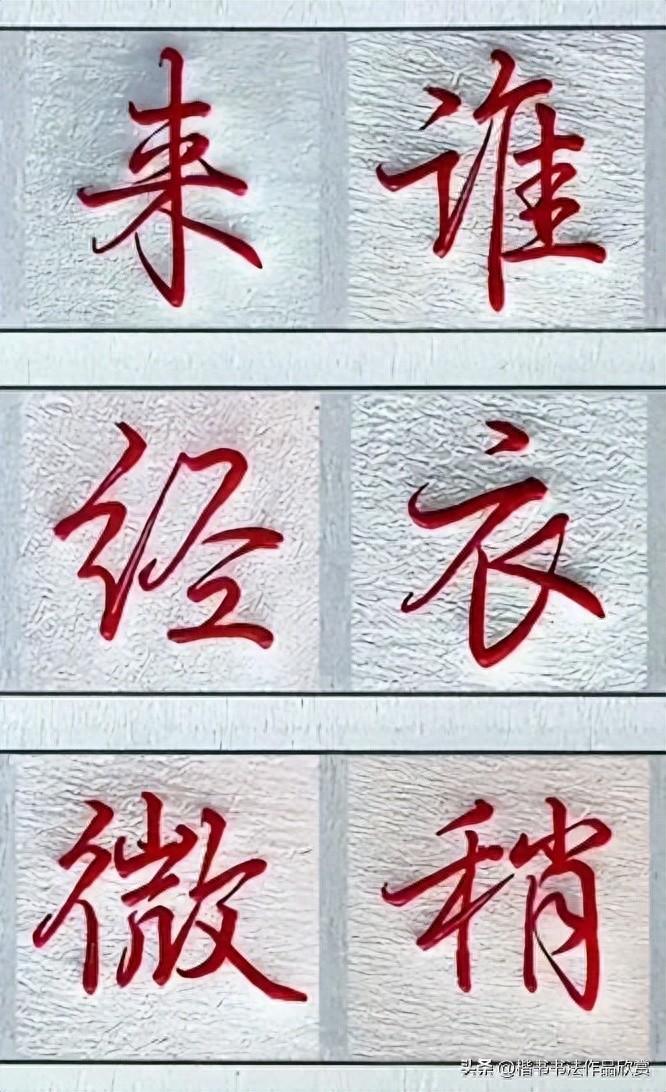 来谁
经衣
微稍
头条 @楷书书法作品欣赏